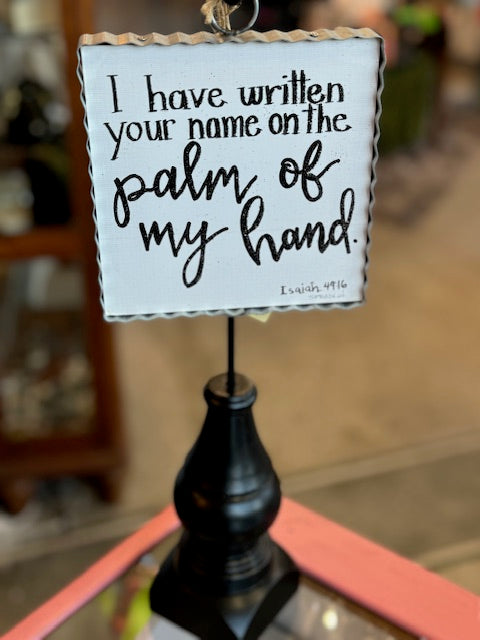 I have written
your name on the
palm of
my hand.
Isaiah 49:16